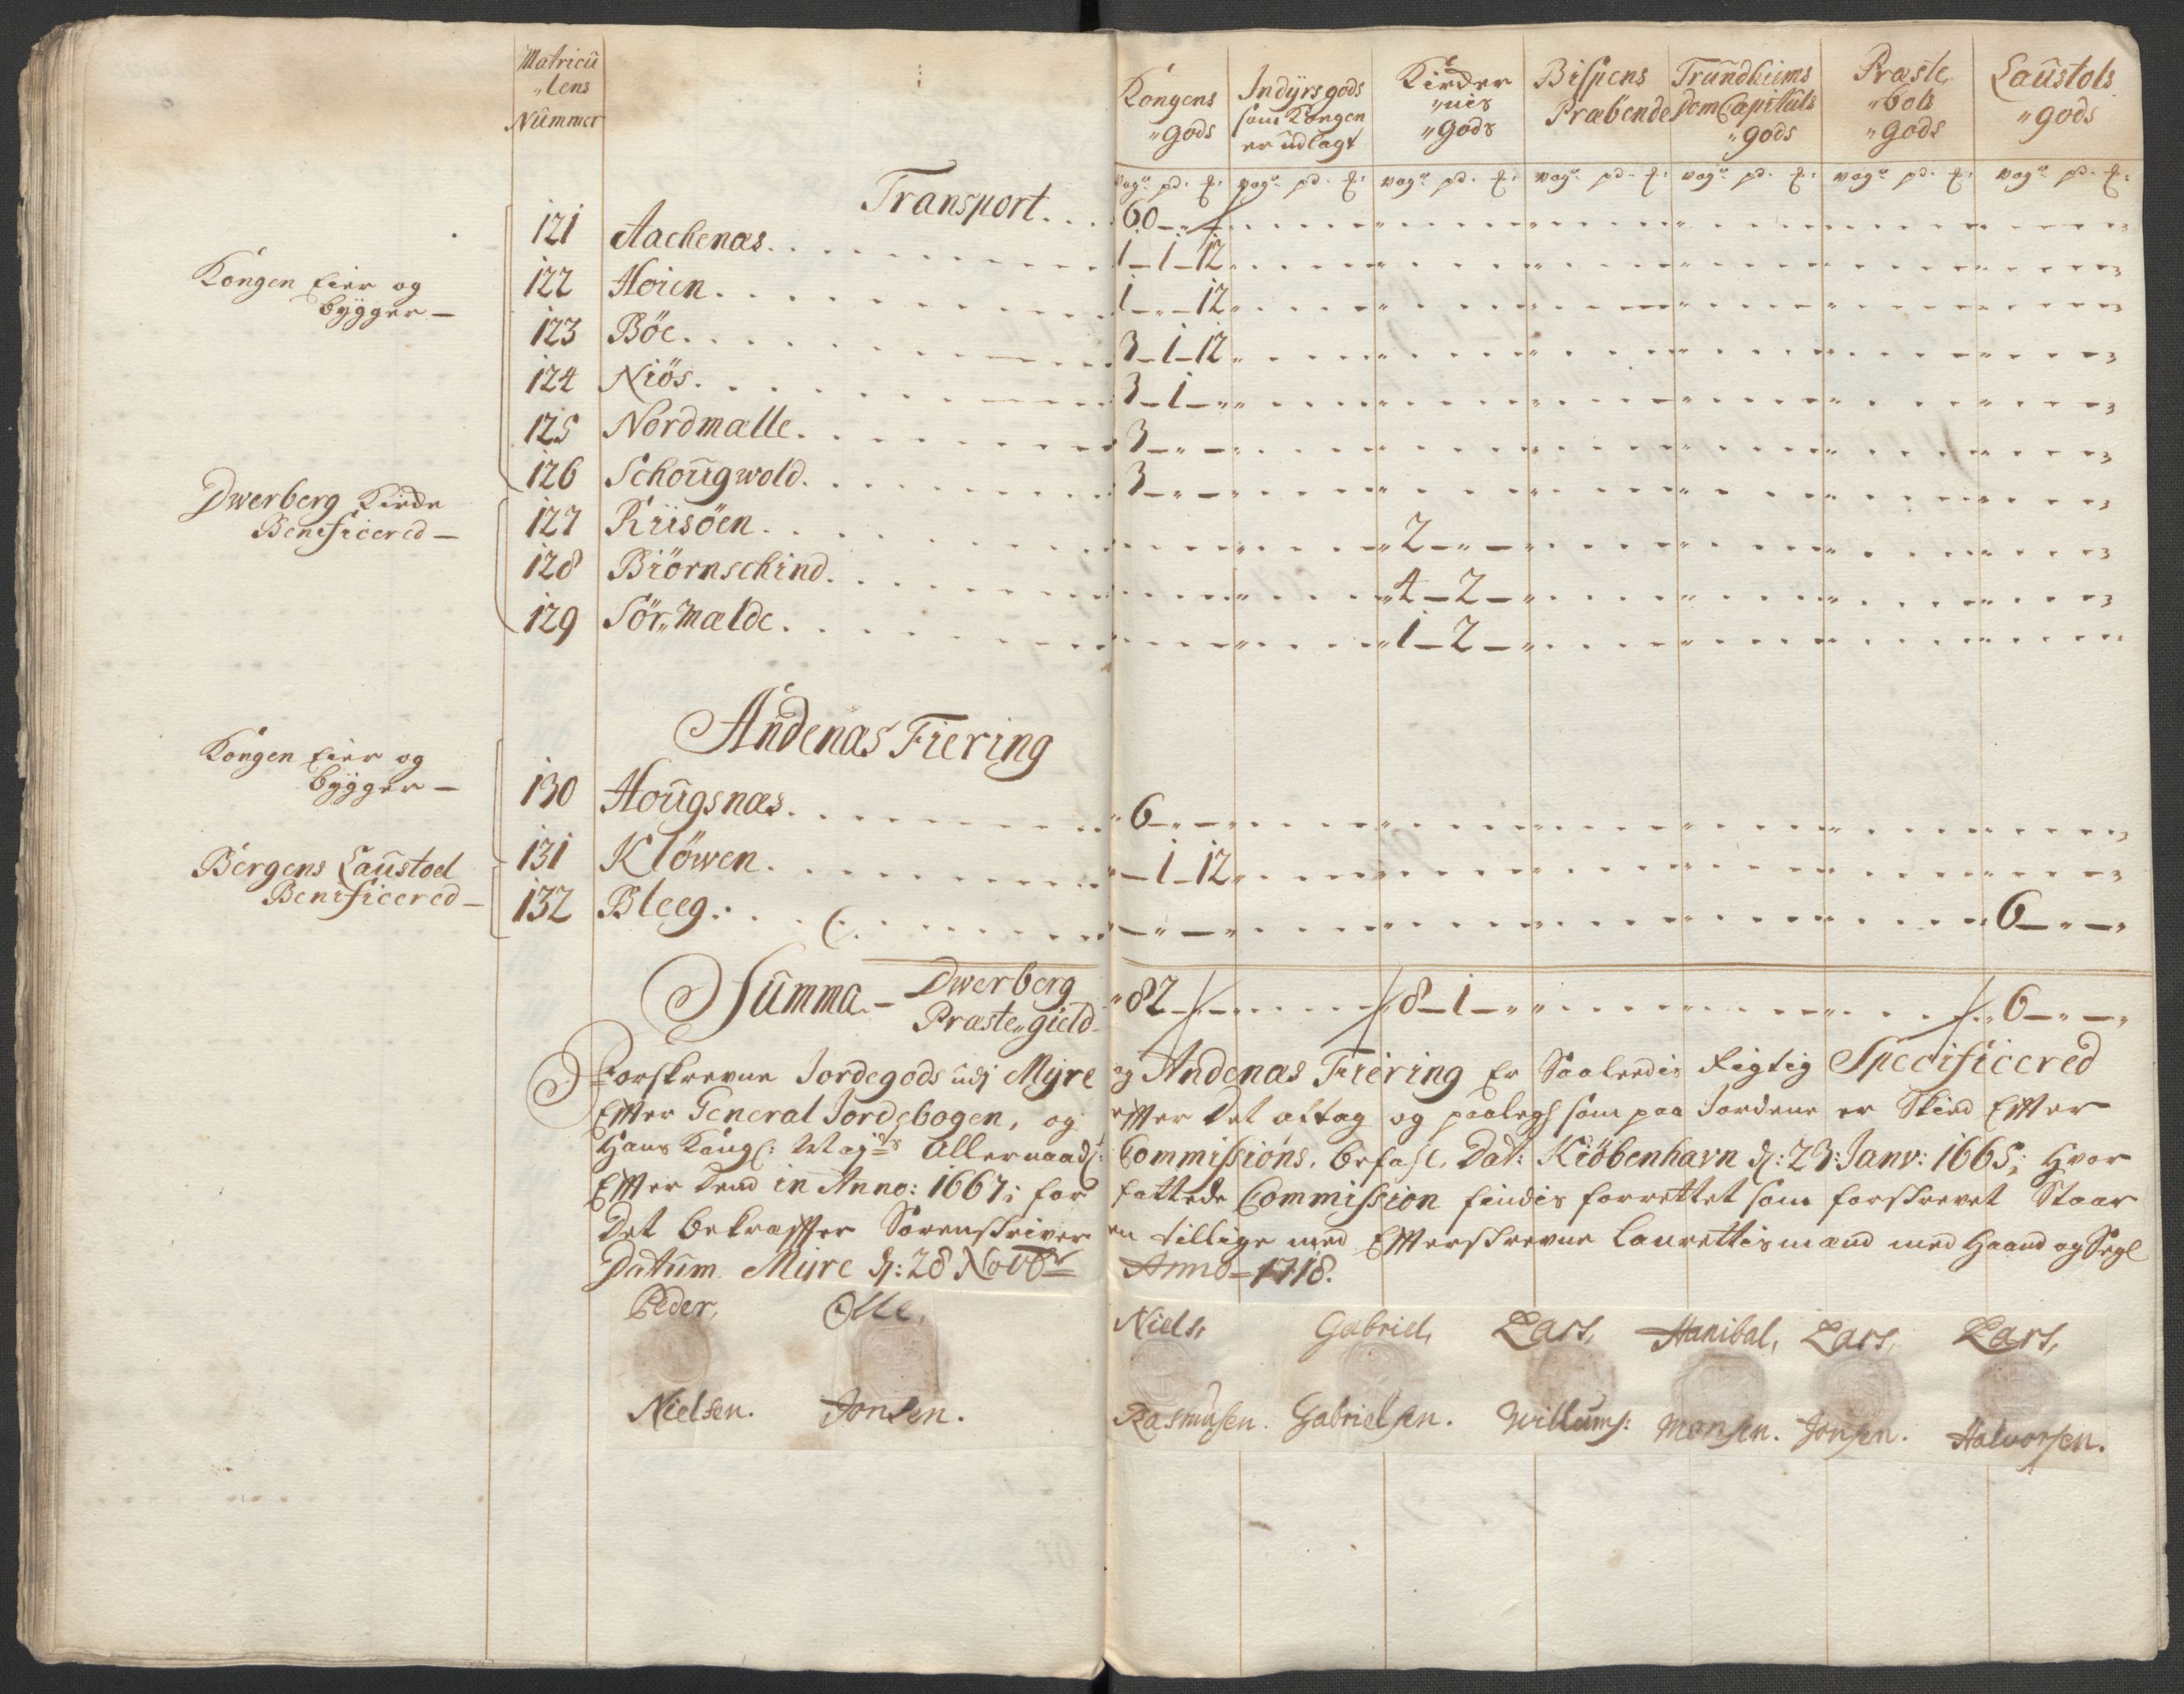 Matricu
„lens
Nummer
Kongens
„gods
Indyrs gods
som Kongen
er udlagt
Kircker
„nis
„Gods
Bispens
Præbende
Trundhiems
Dom Capituls
„gods
Præste
„bols
„Gods
Laustols
„gods
vog: pd: ℔: vog: pd: ℔: vog: pd: ℔: vog: pd: ℔: vog: pd: ℔: vog: pd: ℔: vog: pd: ℔:
Transport. . . 60 – „ –
121 Aackenæs. 1 – 1 – 12
Kongen Eier og
bygger –
122 Høien. 1 – „ – 12
123 Böe. 3 – 1 – 12
124 Niös. 3 – 1 – „
125 Nordmælle. 3 – „ –
126 Schougwold. 3 – „ –
Dwerberg Kircke
Benificered –
127 Riisöen. 2 – „ –
128 Biörnschind. 4 – 2 – „
129 Sör„Mælde. 1 – 2 – „
Andenæs Fiering
Kongen Eier og
bygger –
130 Hougsnæs. 6 – „ –
131 Klöwen. „ – 1 – 12
Bergens Laustoel
Benificered –
132 Bleeg. 6 – „ –
Summa – Dwerberg
Præste„gield – 82 – „ – 8 – 1 – „ 6 – „ –
Forskrevne Jordegods udj Myre og Andenæs Fiering Er Saaledis Rigtig Specificered
Effter General Jordebogen, og effter det aftag og paalegh som paa Jordene er Skied Effter
Hans Kongl: Mayts Allernaads: Commissions, befahl, Dat: Kiöbenhavn d: 23: Janv: 1665; hvor
Effter dend in Anno: 1667; for fattede Commission findis forrettet som forskrevet Staar
Det bekræffter Sorenskriveren tillige med Effterskrevne Laurettismænd med Haand og Segl
Datum Myre d: 28 Novbr Anno – 1718.
Peder, Olle, Niels, Gabriel, Lars, Hanibal, Lars, Lars,
Nielsen. Jonsen. Rasmusen. Gabrielsen. Willums: Monsen. Jonsen. Halvorsen.